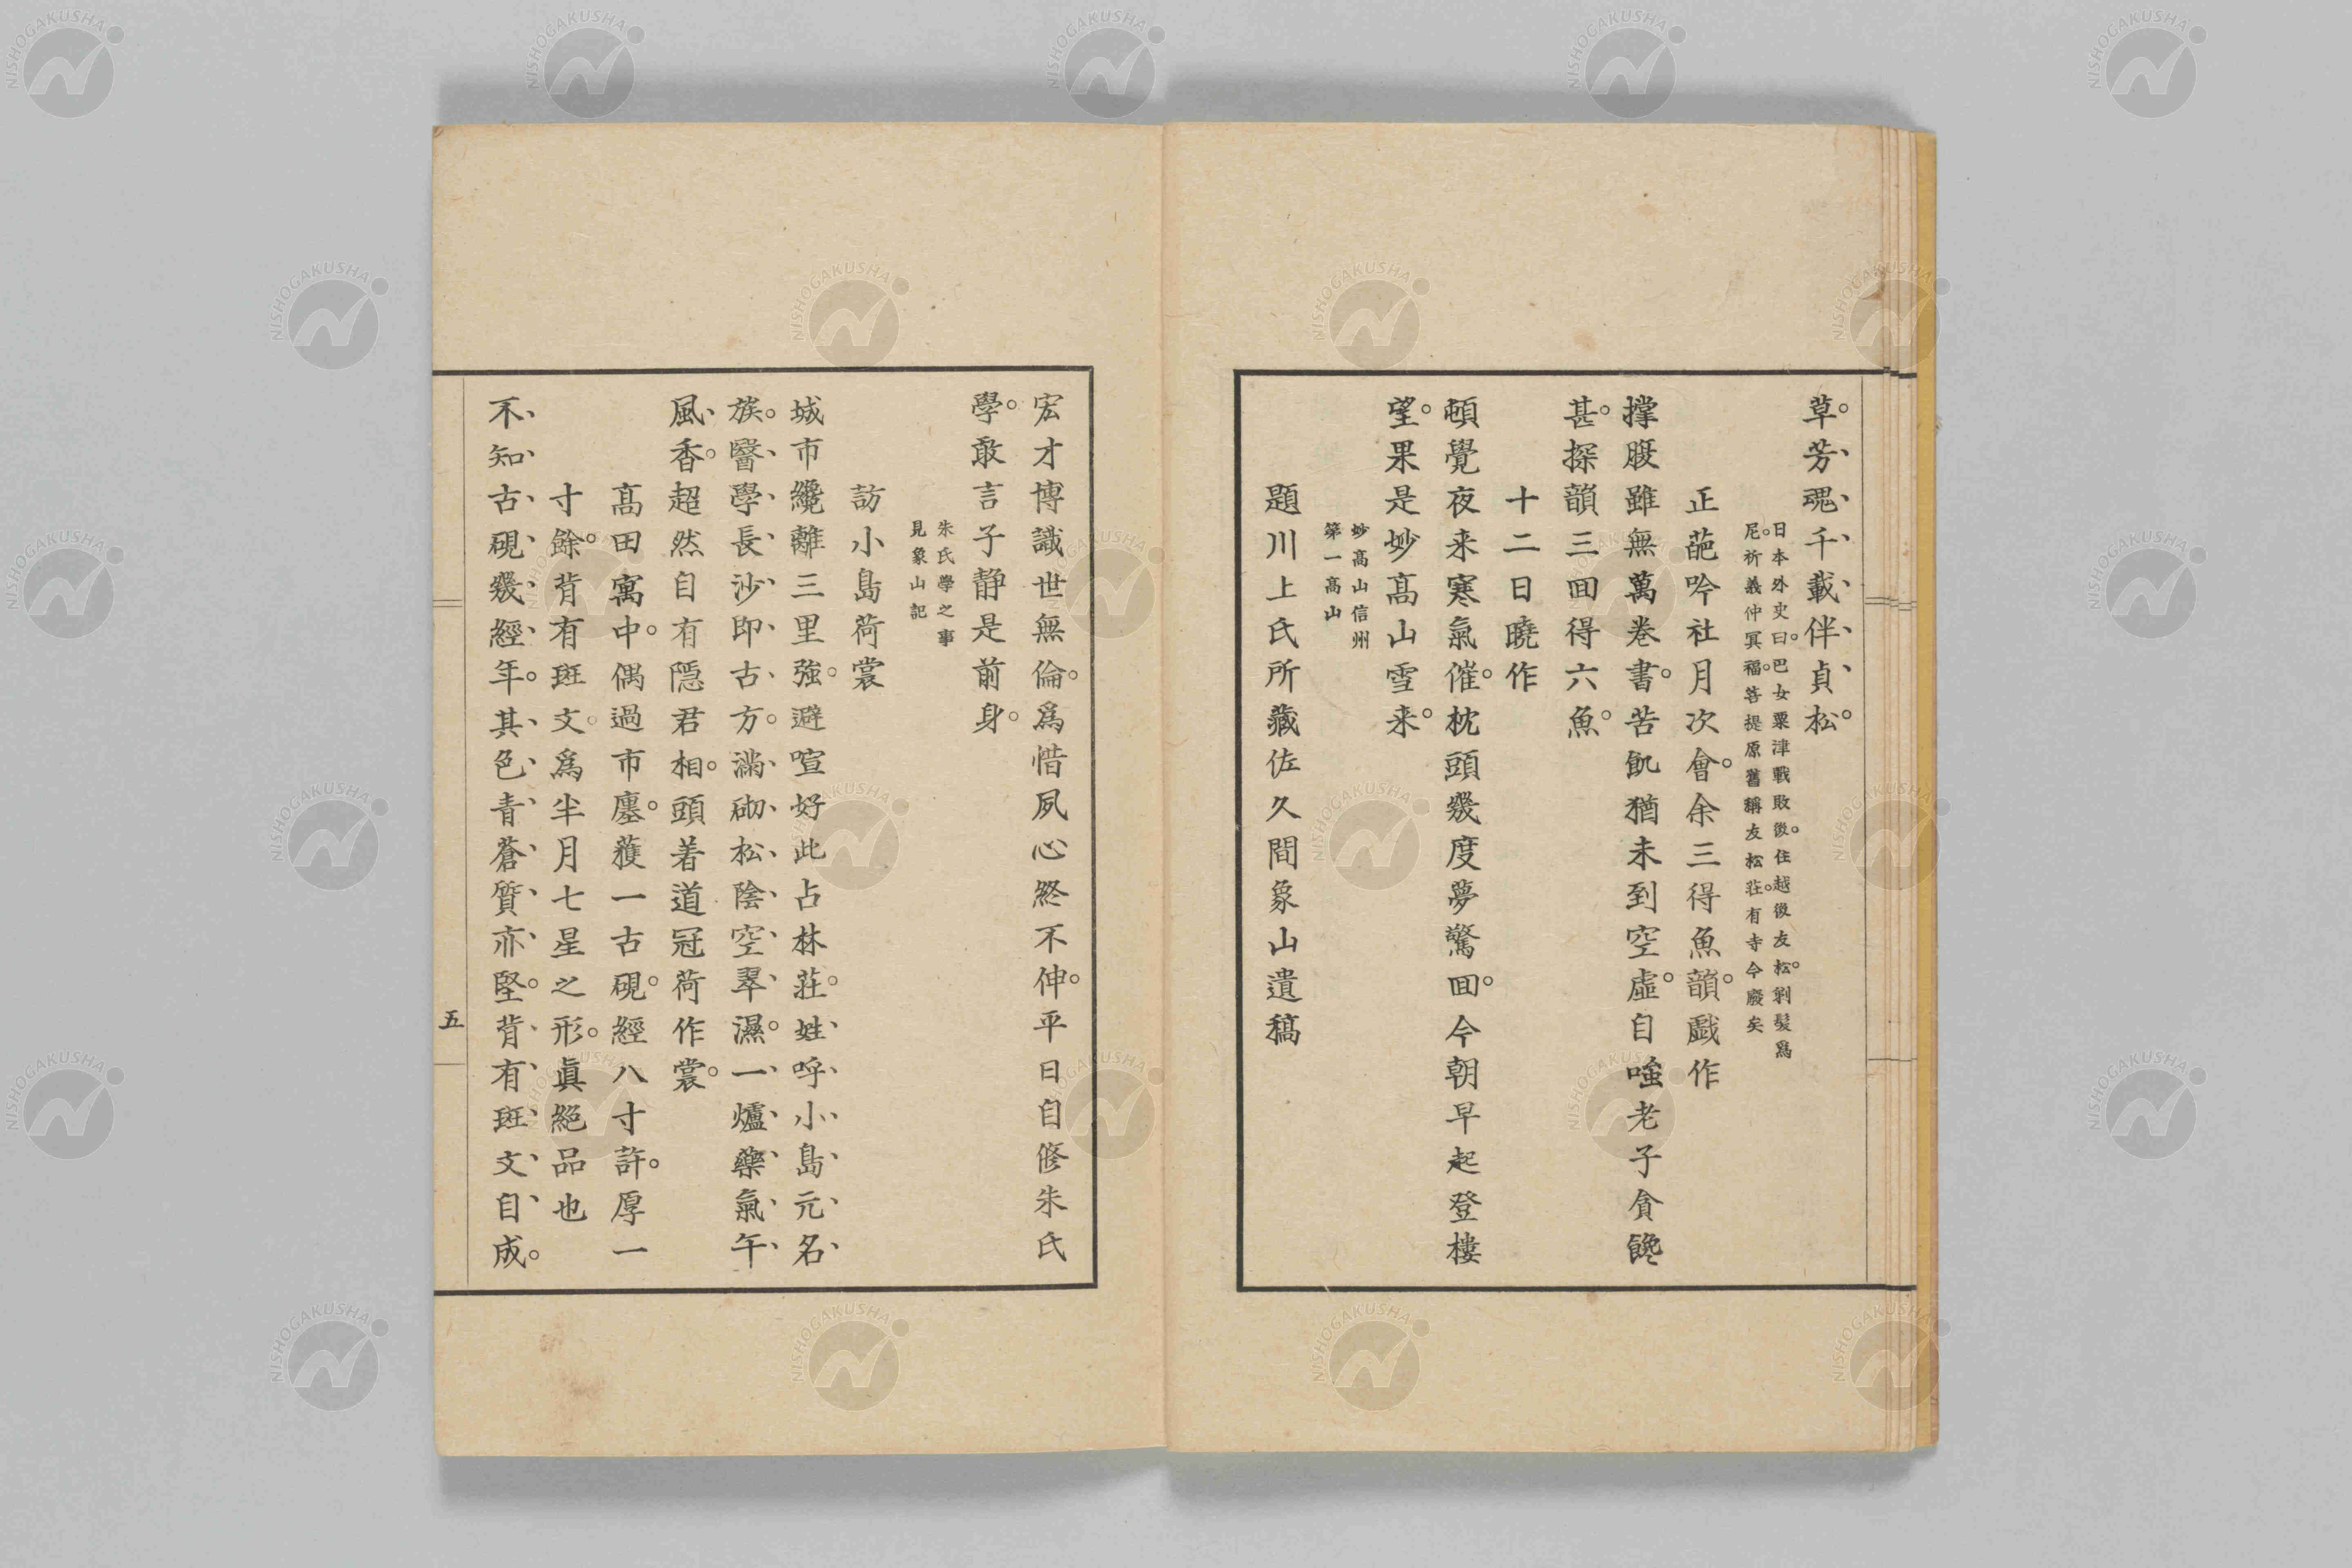 草。芳魂千載伴貞松。
日本外史曰。巴女粟津戰敗後。住越後友松。剃髮爲
尼。祈義仲冥福。菩提原舊稱友松莊。有寺今廢矣
正葩吟社月次會。余三得魚韻。戯作
撑腹雖無萬卷書。苦飢猶未到空虛。自嗤老子貪饞
甚。探韻三回得六魚。
十二日曉作
頓覺夜来寒氣催。枕頭幾度夢驚回。今朝早起登樓
望。果是妙高山雪来。
妙高山信州
第一高山
題川上氏所藏佐久間象山遺稿
宏才博識世無倫。爲惜夙心終不伸。平日自修朱氏
學。敢言子靜是前身。
朱氏學之事
見象山記
訪小島荷裳
城市纔離三里強。避喧好此占林莊。姓呼小島元名
族。醫學長沙即古方。滿砌松陰空翠濕。一爐藥氣午
風香。超然自有隱君相。頭着道冠荷作裳。
高田寓中。偶過市廛。獲一古硯。經八寸許。厚一
寸餘。背有斑文。爲半月七星之形。眞絕品也
不知古硯幾經年。其色青蒼質亦堅。背有斑文自成。
五